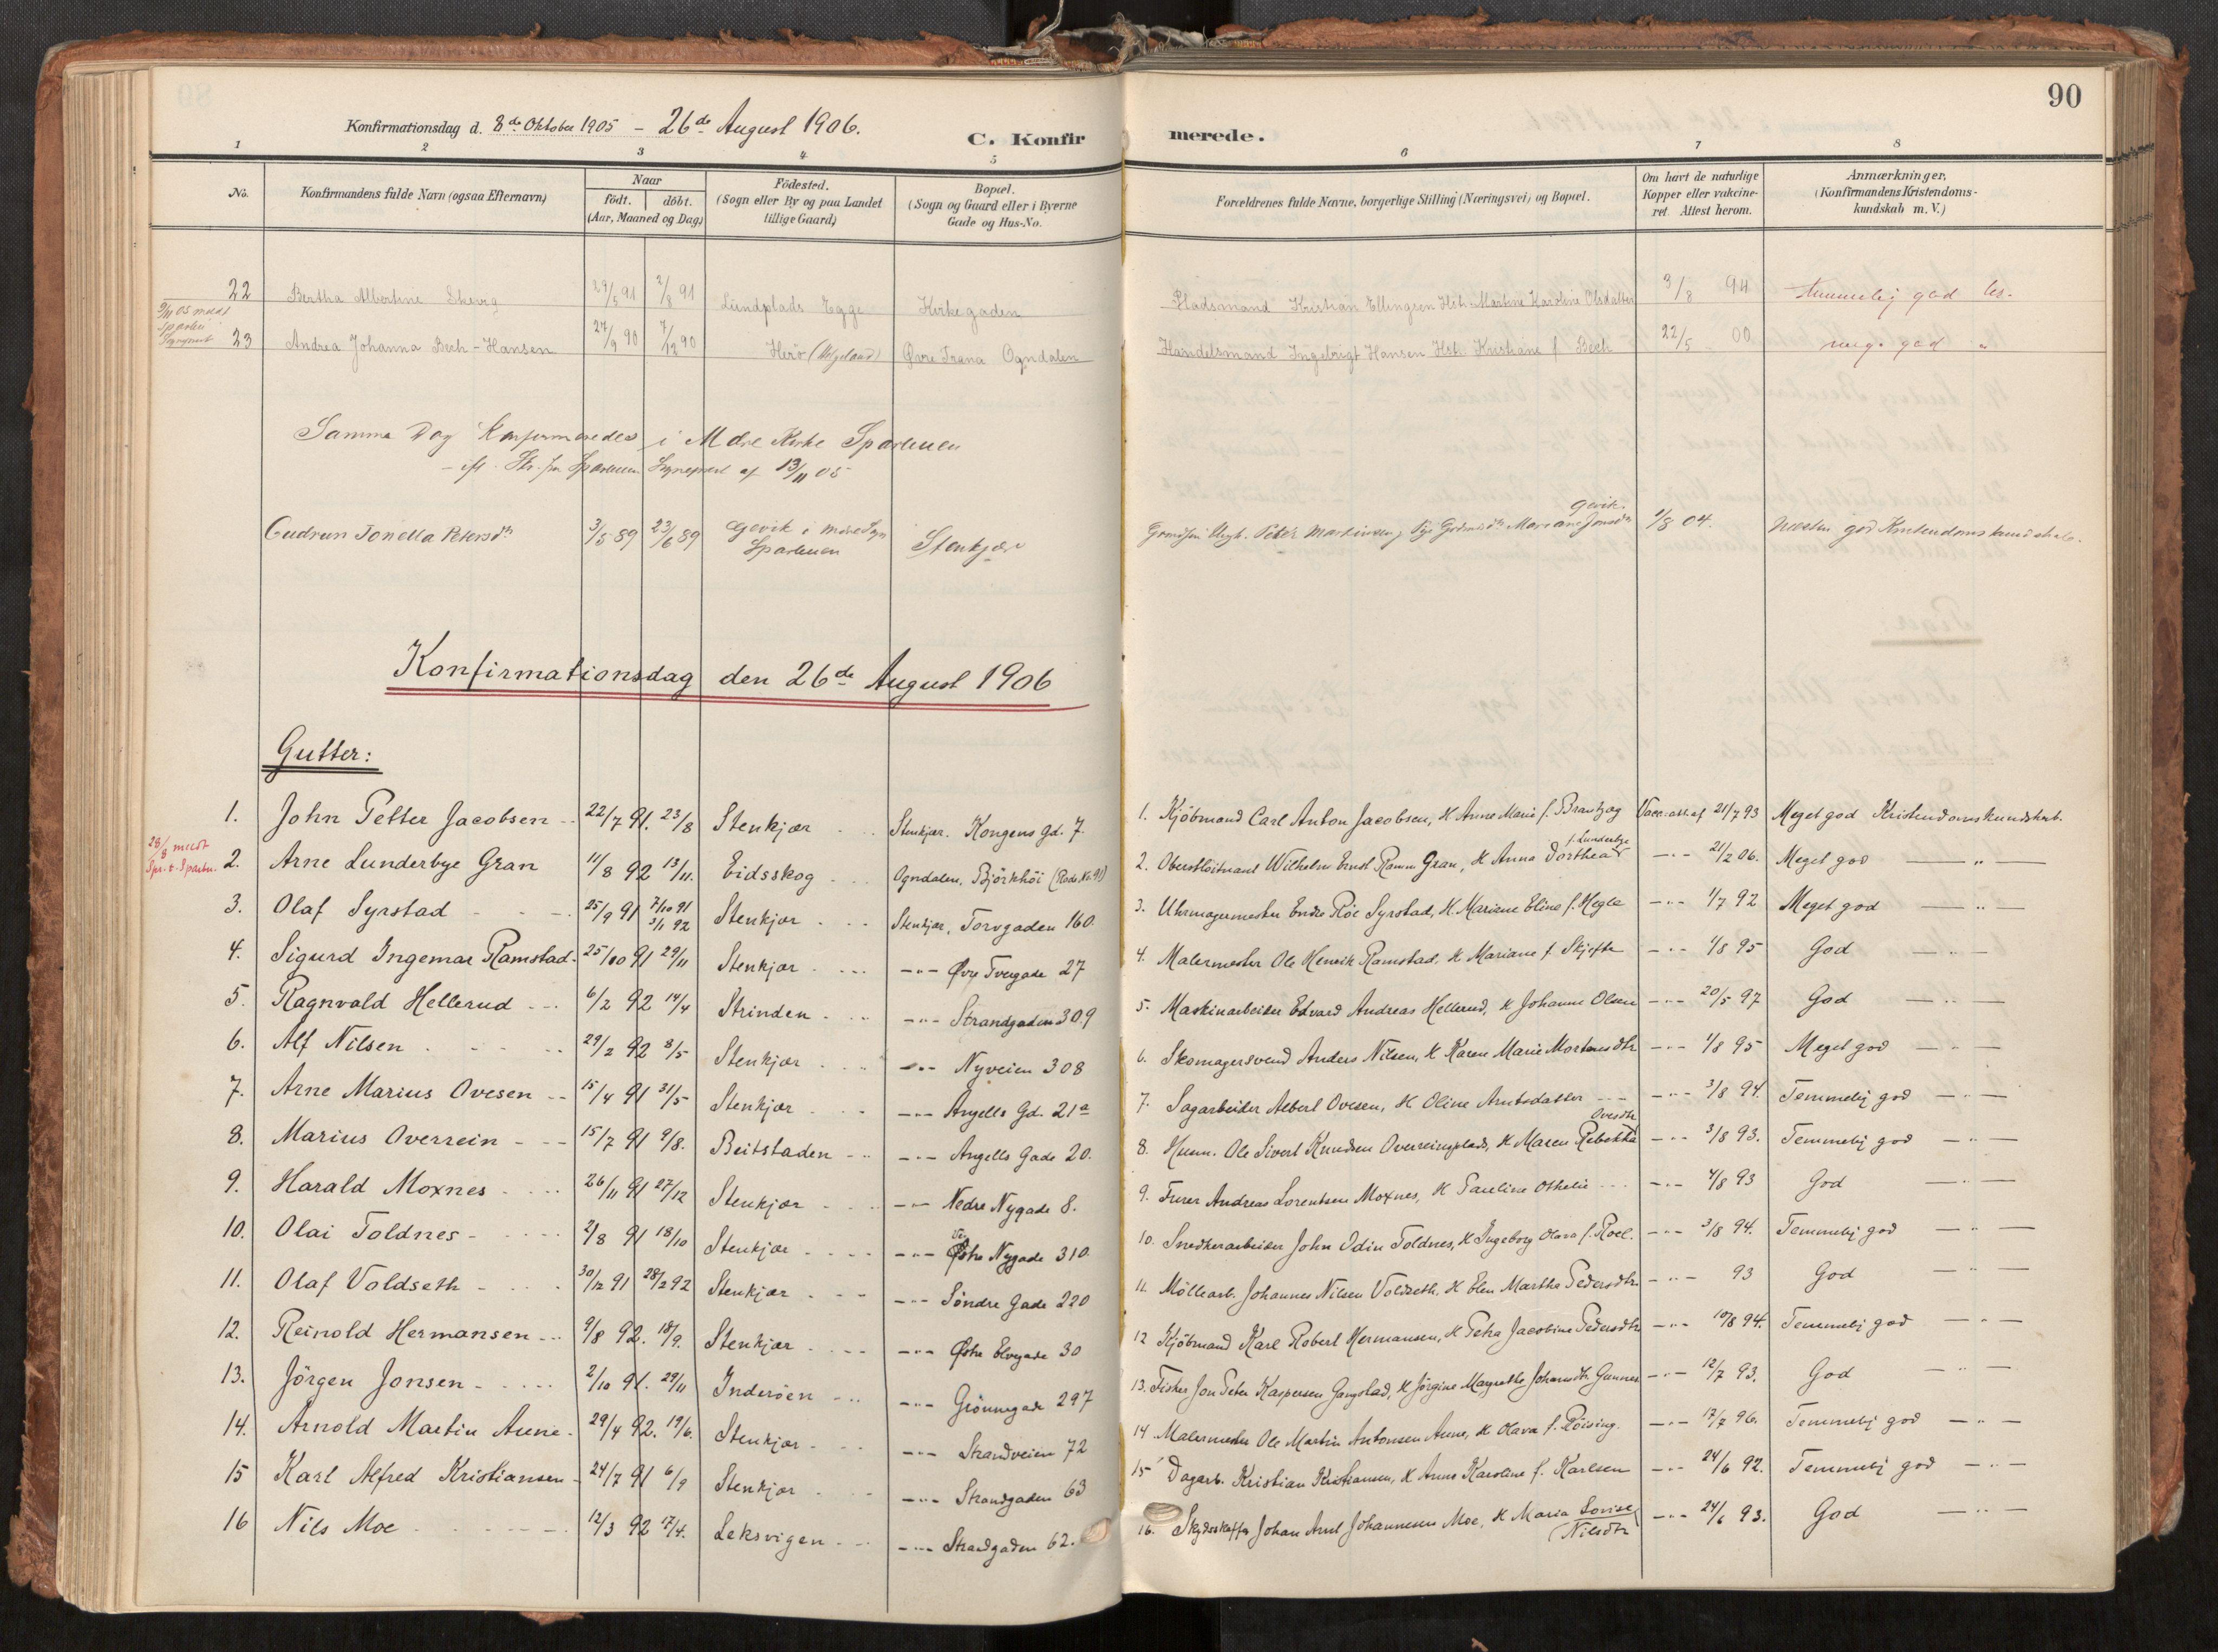 90
Konfirmationsdag d. 8de Oktober 1905 – 26de August 1906.
C. Konfirmerede.
1 2 3 4 5 6 7 8
No. Konfirmandens fulde Navn (ogsaa Efternavn) Naar födt. döbt. (Aar, Maaned og Dag) Födested. (Sogn eller By og paa Landet tillige Gaard) Bopæl. (Sogn og Gaard eller i Byerne Gade og Hus-No. Forældrenes fulde Navne, borgerlige Stilling (Næringsvei) og Bopæl. Om havt de naturlige Kopper eller vakcineret. Attest herom. Anmærkninger. (Konfirmandens Kristendomskundskab m. V.)
22 Bertha Albertine Skevig 29/5 91 2/8 91 Lundplads Egge Kirkegaden Pladsmand Kristian Ellingsen Hst. Martine Karoline Olsdatter 3/8 94 temmelig god
9/11 05 meldt
23 Andrea Johanna Bech-Hansen 27/9 90 7/12 90 Herö (Helgeland) Øvre Trana Ogndalen Handelsmand Ingebrigt Hansen Hst. Kristiane f. Bech 22/5 00 meg. god "
Samme Dag Konfirmeredes i Mære Kirke Sparbuen
– ift. Skr. fra Sparbuen Sogneprest af 13/11 05
Gudrun Jonella Petersdtr 3/5 89 23/6 89 Gjevik i Mære Sgn Sparbuen Stenkjær Ungk. Peter Martinsen, Pige Mariane Jonsdtr 1/8 04. Næsten god Kristendomskundskab.
Konfirmationsdag den 26de August 1906
Gutter:
1. John Petter Jacobsen 22/7 91. 23/8 Stenkjær Stenkjær. Kongens Gd. 7. 1. Kjöbmand Carl Anton Jacobsen, H Anne Marie f. Brantzæg Vacc.att. af 21/7 93 Meget god Kristendomskundskab.
28/8 meldt Spr. t. Sparbu.
2. Arne Lunderbye Gran 11/8 92 13/11. Eidsskog Ogndalen, Björkhöi (Rode No. 91) 2. Oberstlöitnant Wilhelm Ernst Ramm Gran, H Anna Dorthea f. Lunderbye –"– 21/2 06. Meget god – " –
3. Olaf Syrstad 25/9 91 7/10 91 3/1 92 Stenkjær Stenkjær, Torvgaden 160. 3. Uhrmagermester Endre Röe Syrstad, H. Mariane Eline f. Hegle –"– 1/7 92 Meget god – " –
4. Sigurd Ingemar Ramstad 25/10 91 29/11 Stenkjær –"– Øvre Tvergade 27 4. Malermester Ole Henrik Ramstad, H Mariane f. Skjefte –"– 1/8 95 God – " –
5. Ragnvald Hellerud 6/2 92 14/4 Strinden –"– Strandgaden 309 5. Maskinarbeider Edvard Andreas Hellerud, H Johanne Olsen –"– 20/5 97 God – " –
6. Alf Nilsen 29/2 92 8/5 Stenkjær –"– Nyveien 308 6. Skomagersvend Anders Nilsen, H Karen Marie Mortensdtr –"– 1/8 95 Meget god – " –
7. Arne Marius Ovesen 15/4 91 31/5 Stenkjær –"– Angells Gd. 21a 7. Sagarbeider Albert Ovesen, H Oline Arntsdatter –"– 3/8 94. Temmelig god – " –
8. Marius Overrein 15/7 91 9/8. Beitstaden –"– Angells Gade 20. 8. Husm. Ole Sivert Knudsen Overreinsplads, H Maren Rebekka Ovesdtr –"– 3/8 93. Temmelig god – " –
9. Harald Moxnes 26/11 91 27/12 Stenkjær –"– Nedre Nygade 8. 9. Furer Andreas Lorentsen Moxnes, H Pauline Othelie –"– 4/8 93 God – " –
10. Olai Toldnes 2/8 91 18/10 Stenkjær –"– Østre Nygade 310. 10. Snedkerarbeider John Odin Toldnes, H Ingeborg Olava f. Roel. –"– 3/8 94. Temmelig god – " –
11. Olaf Voldseth 30/12 91 28/2 92 Stenkjær –"– Söndre Gade 220 11. Möllearb. Johannes Nilsen Voldseth, H Elen Martha Pedersdtr. –"– 93 God – " –
12. Reinold Hermansen 9/8 92. 18/9. Stenkjær –"– Østre Elvegade 30 12 Kjöbmand Karl Robert Hermansen, H Petra Jacobine Pedersdtr –"– 10/8 94. Temmelig god – " –
13. Jörgen Jonsen 2/10 91. 29/11 Inderöen –"– Grönnegade 297 13. Fisker Jon Peter Kaspersen Gangstad, H Jörgine Magrethe Johansdtr Gunnes –"– 12/7 93. God – " –
14. Arnold Martin Aune 29/4 92. 19/6. Stenkjær –"– Strandveien 72 14. Malermester Ole Martin Antonsen Aune, H Olava f. Röising. –"– 17/7 96. Temmelig god – " –
15 Karl Alfred Kristiansen 24/7 91 6/9 Stenkjær –"– Strandgaden 63 15 Dagarb. Kristian Kristiansen, H Anne Karoline f. Karlsen –"– 24/6 92. Temmelig god – " –
16 Nils Moe 12/3 92 17/4. Leksvigen –"– Strandgaden 62. 16. Skydsskaffer Johan Arnt Johannesen Moe, H Maria Lovise Nilsdtr –"– 24/6 93. God – " –